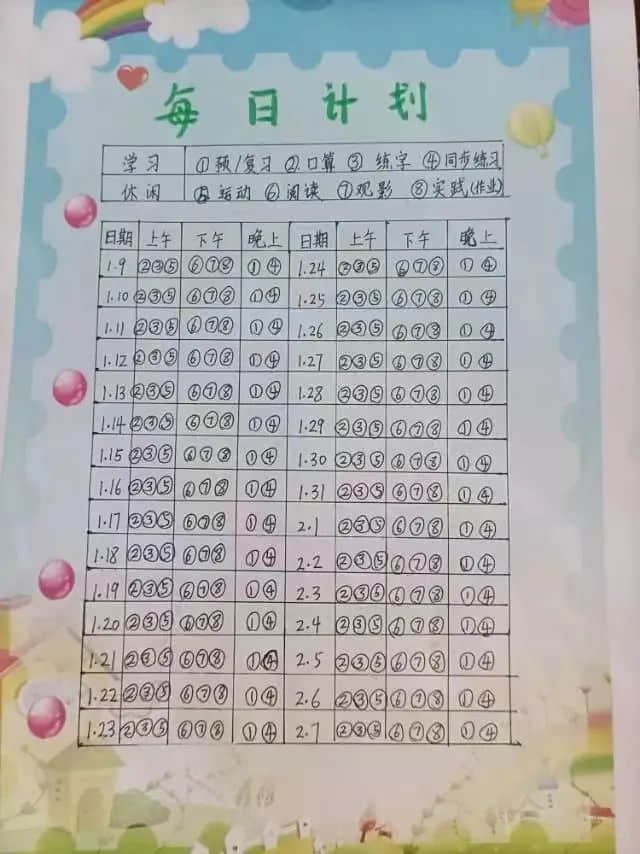 每日计划
学习 ①预/复习 ②口算 ③练字 ④同步练习
休闲 ⑤运动 ⑥阅读 ⑦观影 ⑧实践(作业)
日期 上午 下午 晚上 日期 上午 下午 晚上
1.9 ②③⑤ ⑥⑦⑧ ①④ 1.24 ②③⑤ ⑥⑦⑧ ①④
1.10 ②③⑤ ⑥⑦⑧ ①④ 1.25 ②③⑤ ⑥⑦⑧ ①④
1.11 ②③⑤ ⑥⑦⑧ ①④ 1.26 ②③⑤ ⑥⑦⑧ ①④
1.12 ②③⑤ ⑥⑦⑧ ①④ 1.27 ②③⑤ ⑥⑦⑧ ①④
1.13 ②③⑤ ⑥⑦⑧ ①④ 1.28 ②③⑤ ⑥⑦⑧ ①④
1.14 ②③⑤ ⑥⑦⑧ ①④ 1.29 ②③⑤ ⑥⑦⑧ ①④
1.15 ②③⑤ ⑥⑦⑧ ①④ 1.30 ②③⑤ ⑥⑦⑧ ①④
1.16 ②③⑤ ⑥⑦⑧ ①④ 1.31 ②③⑤ ⑥⑦⑧ ①④
1.17 ②③⑤ ⑥⑦⑧ ①④ 2.1 ②③⑤ ⑥⑦⑧ ①④
1.18 ②③⑤ ⑥⑦⑧ ①④ 2.2 ②③⑤ ⑥⑦⑧ ①④
1.19 ②③⑤ ⑥⑦⑧ ①④ 2.3 ②③⑤ ⑥⑦⑧ ①④
1.20 ②③⑤ ⑥⑦⑧ ①④ 2.4 ②③⑤ ⑥⑦⑧ ①④
1.21 ②③⑤ ⑥⑦⑧ ①④ 2.5 ②③⑤ ⑥⑦⑧ ①④
1.22 ②③⑤ ⑥⑦⑧ ①④ 2.6 ②③⑤ ⑥⑦⑧ ①④
1.23 ②③⑤ ⑥⑦⑧ ①④ 2.7 ②③⑤ ⑥⑦⑧ ①④